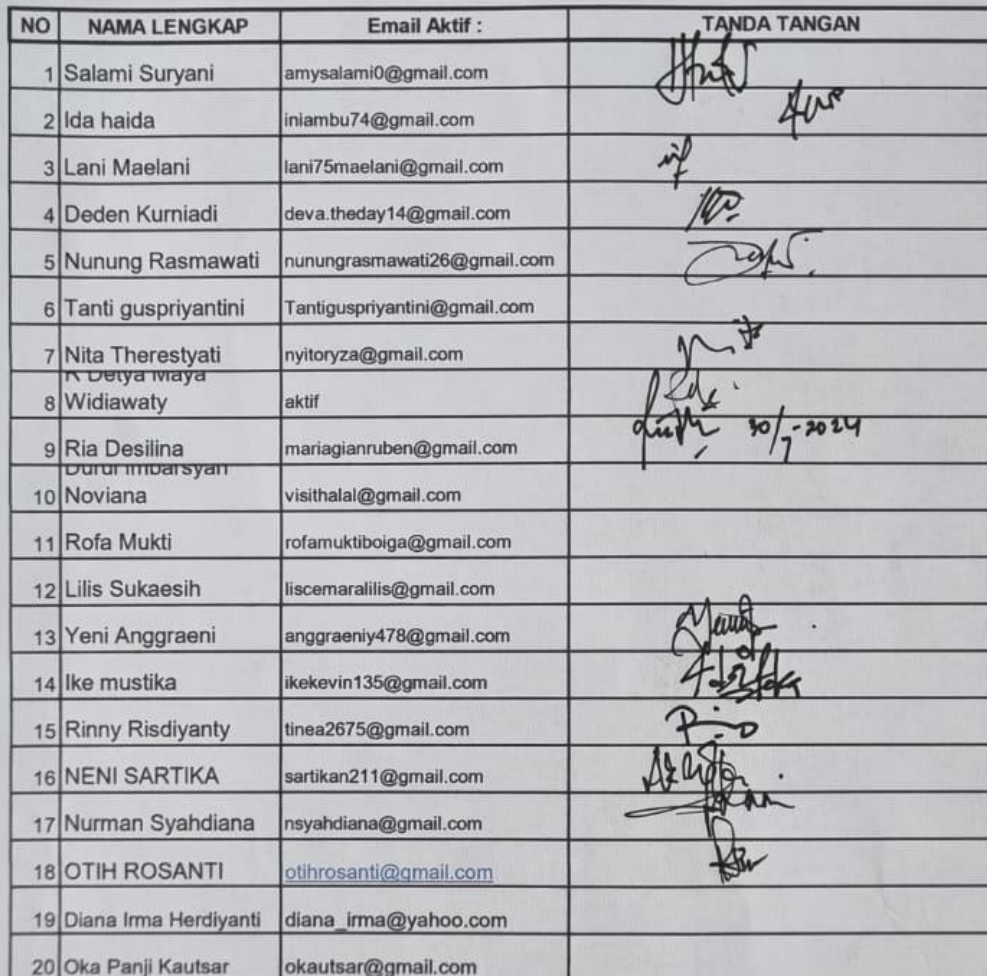 NO NAMA LENGKAP Email Aktif : TANDA TANGAN
1 Salami Suryani amysalami0@gmail.com
2 Ida haida iniambu74@gmail.com
3 Lani Maelani lani75maelani@gmail.com
4 Deden Kurniadi deva.theday14@gmail.com
5 Nunung Rasmawati nunungrasmawati26@gmail.com
6 Tanti guspriyantini Tantiguspriyantini@gmail.com
7 Nita Therestyati nyitoryza@gmail.com
Maya
8 Widiawaty aktif
9 Ria Desilina mariagianruben@gmail.com 30/7-2024
10 Noviana visithalal@gmail.com
11 Rofa Mukti rofamuktiboiga@gmail.com
12 Lilis Sukaesih liscemaralilis@gmail.com
13 Yeni Anggraeni anggraeniy478@gmail.com
14 Ike mustika ikekevin135@gmail.com
15 Rinny Risdiyanty tinea2675@gmail.com
16 NENI SARTIKA sartikan211@gmail.com
17 Nurman Syahdiana nsyahdiana@gmail.com
18 OTIH ROSANTI otihrosanti@gmail.com
19 Diana Irma Herdiyanti diana_irma@yahoo.com
20 Oka Panji Kautsar okautsar@gmail.com